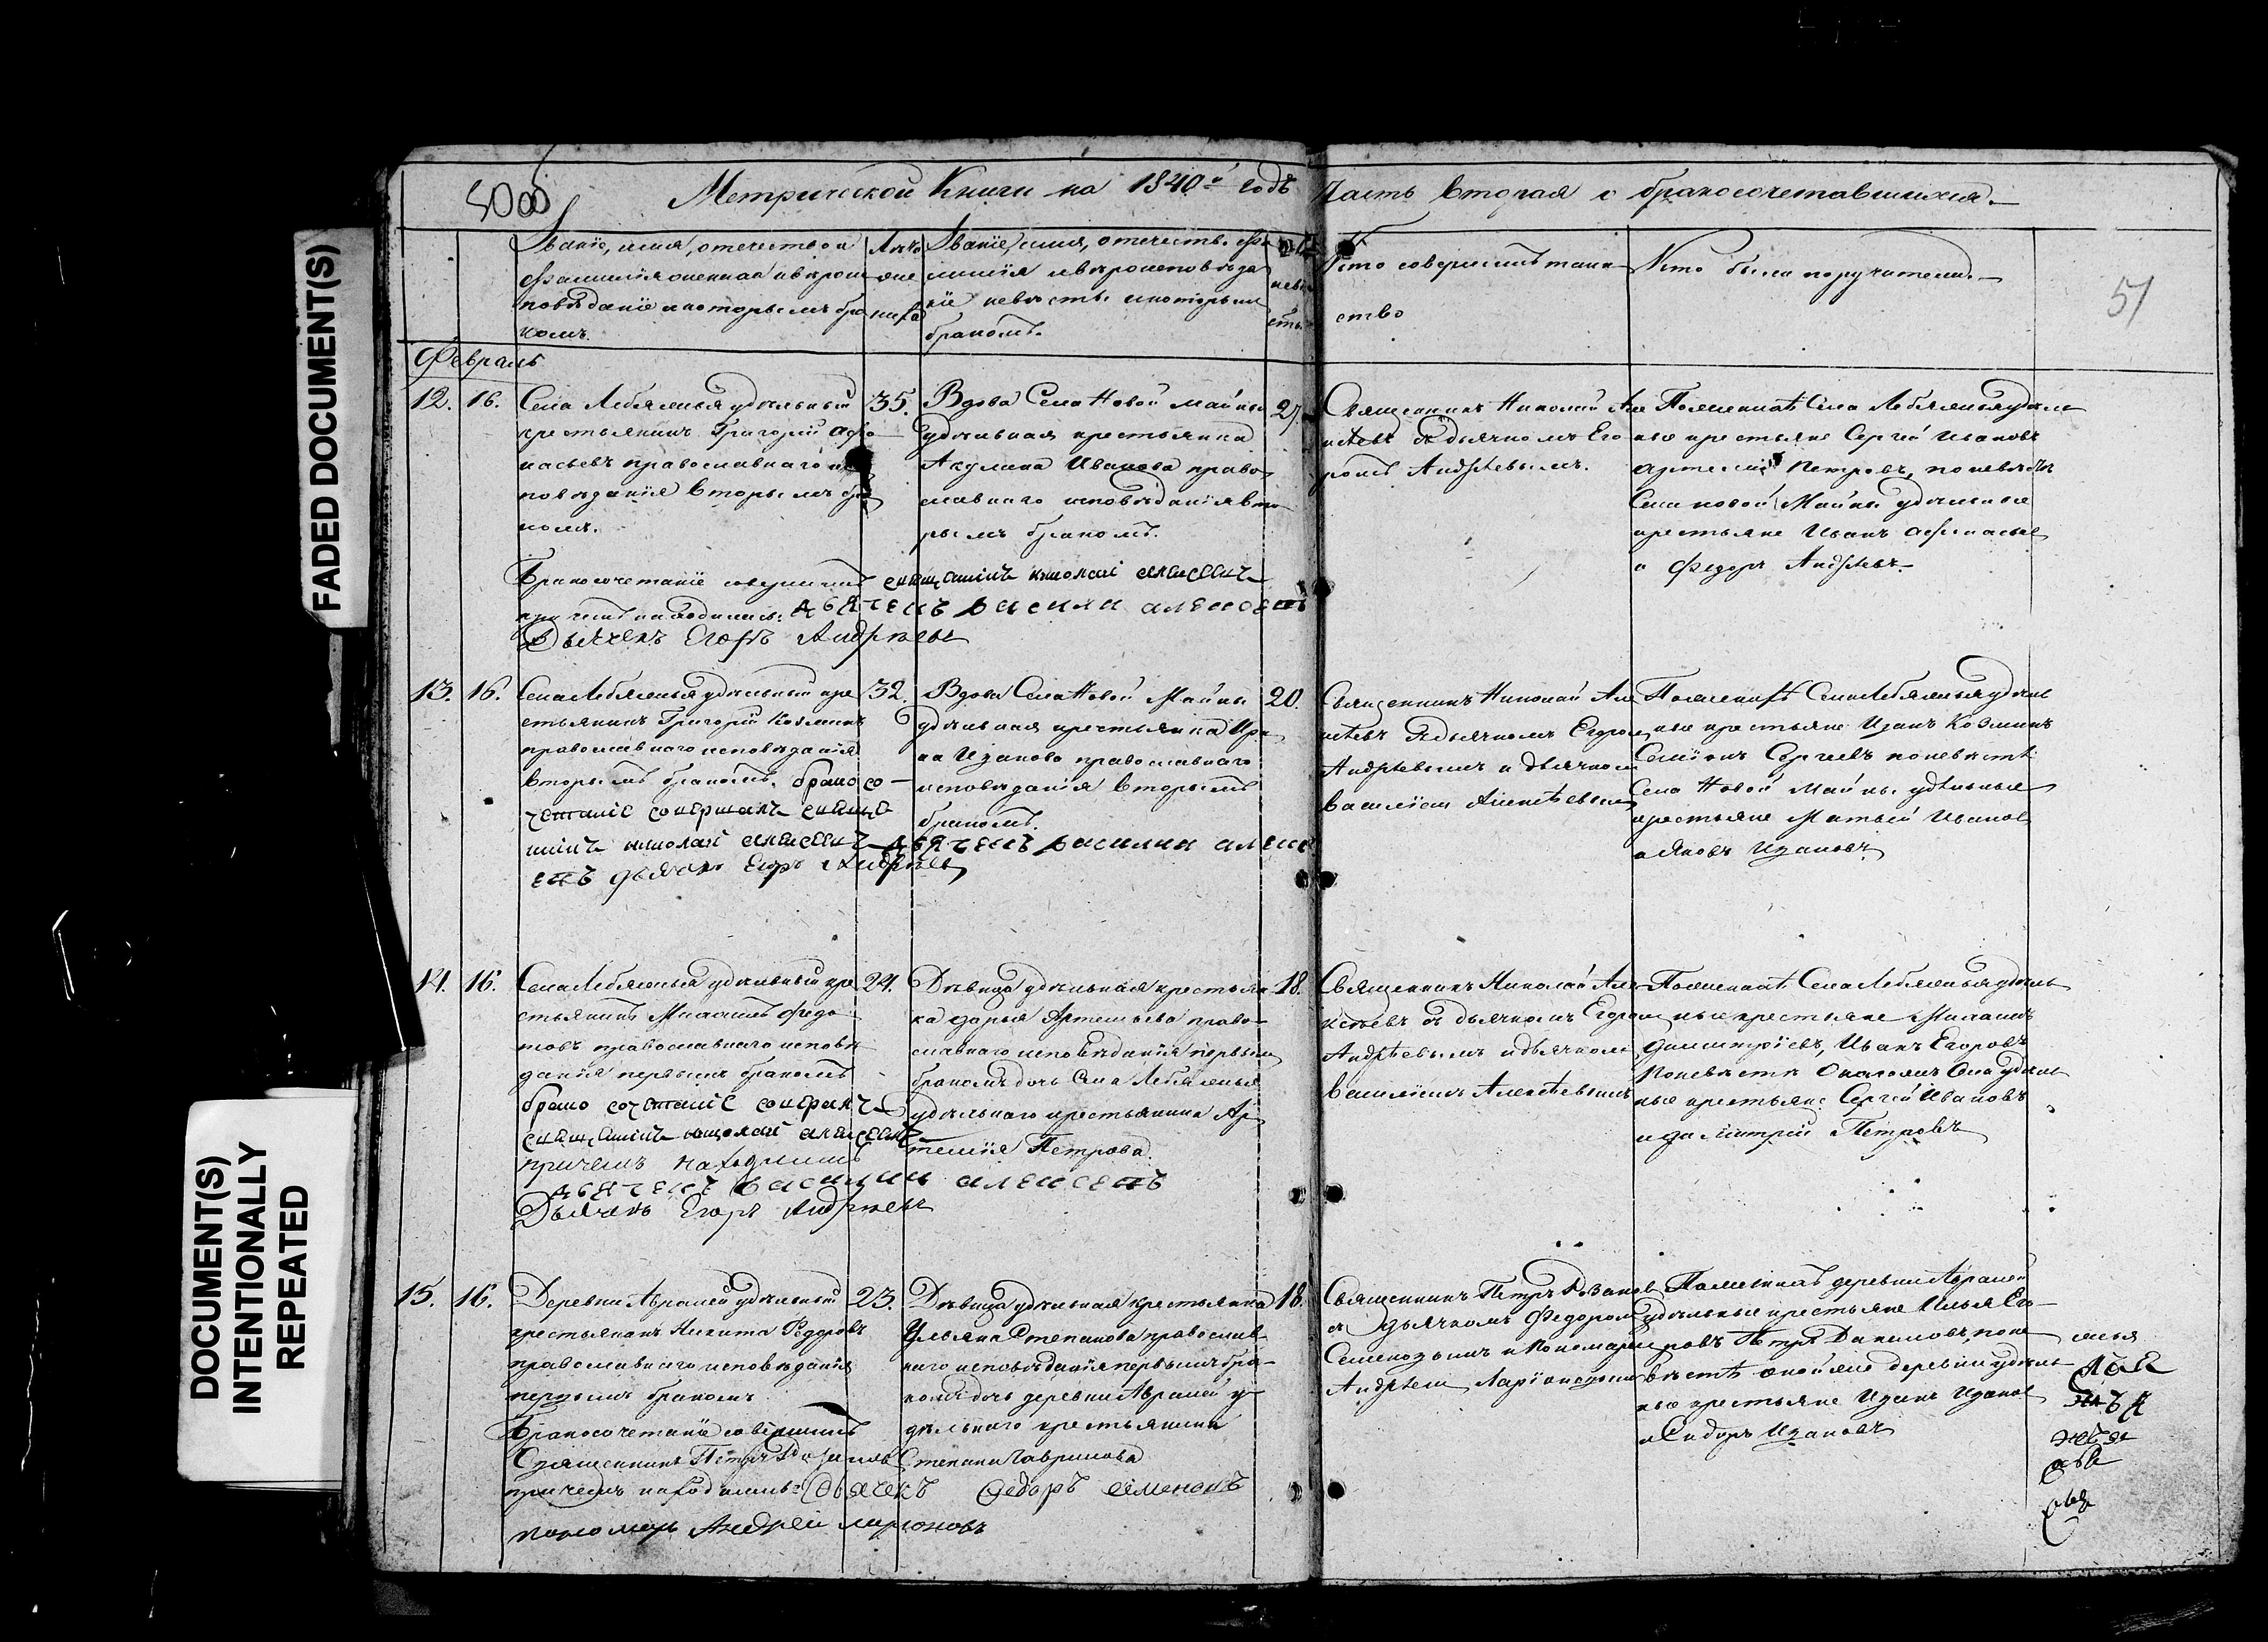 FADED DOCUMENT(S)
DOCUMENT(S)
INTENTIONALLY
REPEATED
Метрической Книги на 1840й годъ Часть вторая о бракосочетавшихся.
51
Званiе, имя, отечество и
фамилiя жениха и вѣроис
повѣданiе и которымъ бра
комъ.
Лѣта
жениха
Званiе, имя, отечество фа
милiя и вѣроисповѣда
нiе невѣсты и которымъ
бракомъ.
Кто совершилъ таин
ство
Кто были поручители.
Февраль
12.
16.
Села Лебяжья удѣльный
крестьянинъ Григорiй Афа
насьевъ православнаго ис
повѣданiя вторымъ бра
комъ.
Бракосочетанiе совершилъ священникъ николай алексеевъ
при чемъ находились: дьячекъ василии алексеевъ
Дьячекъ Егоръ Андрѣевъ
35.
Вдова Села Новой майны
удѣльная крестьянка
Акулина Иванова право
славнаго исповѣданiя вто
рымъ бракомъ.
27.
Священникъ Николай Але
ксѣевъ съ дьячкомъ Его
ромъ Андрѣевымъ.
По женихѣ Села Лебяжья удѣль
ные крестьяне Сергѣй Ивановъ
Артемiй Петровъ, по невѣстѣ
Села новой Майны удѣльные
крестьяне Иванъ Афанасьевъ
и Федоръ Андрѣевъ
13.
16.
Села Лебяжья удѣльный кре
стьянинъ Григорiй Козминъ
православнаго исповѣданiя
вторымъ бракомъ. брако со
четанiе совершалъ священ
никъ николай алексеевъ дьячекъ василии алексе
евъ дьячекъ Егоръ Андрѣевъ
32.
Вдова Села Новой Майны
удѣльная крестьянка Ири
на Иванова православнаго
исповѣданiя вторымъ
бракомъ.
20.
Священникъ Николай Але
ксѣевъ съ дьячкомъ Егоромъ
Андрѣевымъ и дьячкомъ
Василiемъ Алексѣевымъ
По женихѣ Села Лебяжья удѣль
ные крестьяне Иванъ Козминъ
Семiонъ Сергѣевъ по невѣстѣ
Села Новой Майны удѣльные
крестьяне Матвѣй Ивановъ
и Яковъ Ивановъ
14.
16.
Села Лебяжья удѣльный кре
стьянинъ Федо
товъ православнаго исповѣ
данiя первымъ бракомъ
брако сочетанiе совершалъ
священникъ николай алексеевъ
при чемъ находились
дьячекъ василии алексеевъ
Дьячекъ Егоръ Андрѣевъ
24.
Дѣвица удѣльная крестьян
ка Дарья Артемьева право
славнаго исповѣданiя первымъ
бракомъ дочь Села Лебяжья
удѣльнаго крестьянина Ар
темiя Петрова.
18.
Священникъ Николай Але
ксѣевъ съ дьячкомъ Егоромъ
Андрѣевымъ и дьячкомъ
Василiемъ Алексѣевымъ
По женихѣ Села Лебяжья удѣль
ные крестьяне
Димитрiевъ, Иванъ Егоровъ
По невѣстѣ Онагожъ Села удѣль
ные крестьяне Сергѣй Ивановъ
и Димитрiй Петровъ
15.
16.
Деревни Авралей удѣльный
крестьянинъ Никита Федоровъ
православнаго исповѣданiя
первымъ бракомъ
Бракосочетанiе совершилъ
Священникъ Петръ Розановъ
при чемъ находились: Дьячекъ Федоръ Семеновъ
пономарь Андрей ларiоновъ
23.
Дѣвица удѣльная крестьянка
Ульяна Степанова православ
наго исповѣданiя первымъ бра
комъ дочь деревни Авралей у
дѣльнаго крестьянина
Степана Гаврилова
18.
Священникъ Петръ Розановъ
съ дьячкомъ Федоромъ
Семеновымъ и Пономаремъ
Андрѣемъ Ларiоновымъ
По женихѣ деревни Авралей
удѣльные крестьяне Илья Его
ровъ Петръ Даниловъ, по не
вѣстѣ оной же деревни удѣль
ные крестьяне Иванъ Ивановъ
и Сидоръ Ивановъ